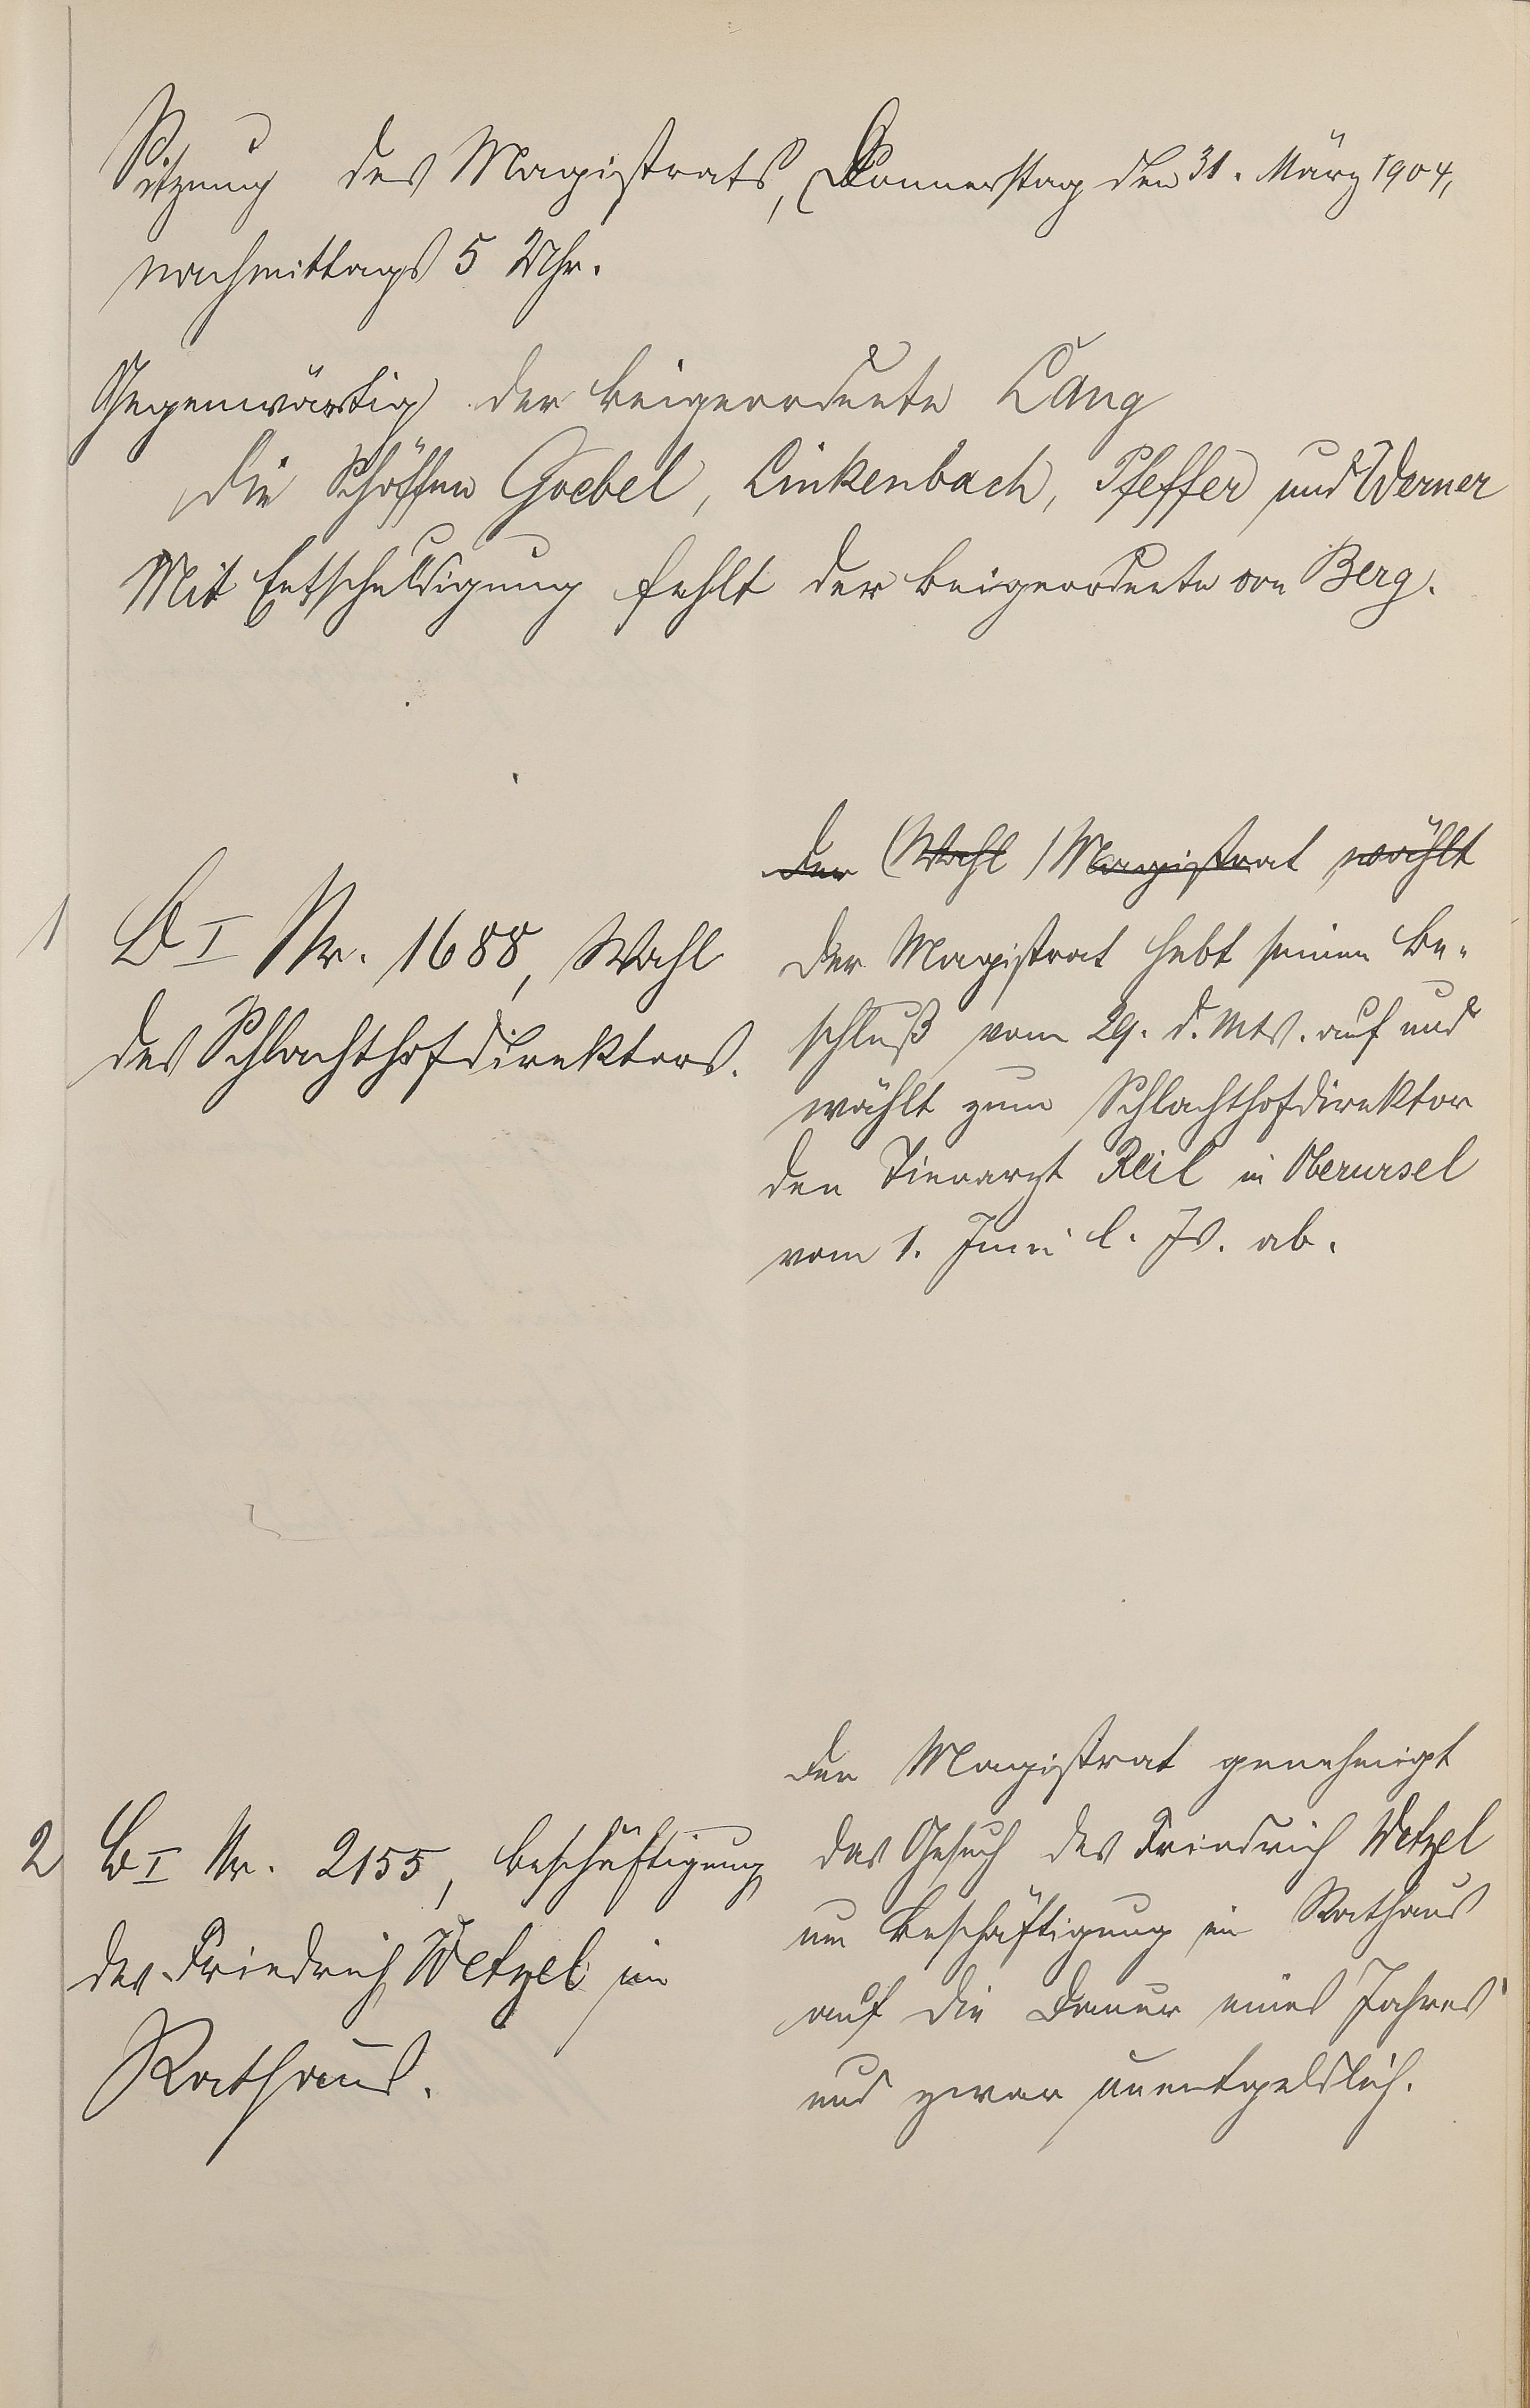 Sitzung des Magistrats, Donnerstag den 31. März 1904,
nachmittags 5 Uhr.
Gegenwärtig der Beigeordnete Lang
die Schöffen Goebel, Linkenbach, Pfeffer und Werner
Mit Entschuldigung fehlt der Beigeordnete von Berg.
1
B I Nr. 1688, Wahl
des Schlachthofdirektors.
Der Wahl Magistrat wählt
Der Magistrat hebt seinen Be-
schluß vom 29. d. Mts. auf und
wählt zum Schlachthofdirektor
den Tierarzt Reil in Oberursel
vom 1. Juni l. Js. ab.
2
B I Nr. 2155, Beschäftigung
des Friedrich Wetzel im
Rathaus.
Der Magistrat genehmigt
das Gesuch des Friedrich Wetzel
um Beschäftigung im Rathaus
auf die Dauer eines Jahres
und zwar unentgeldlich.